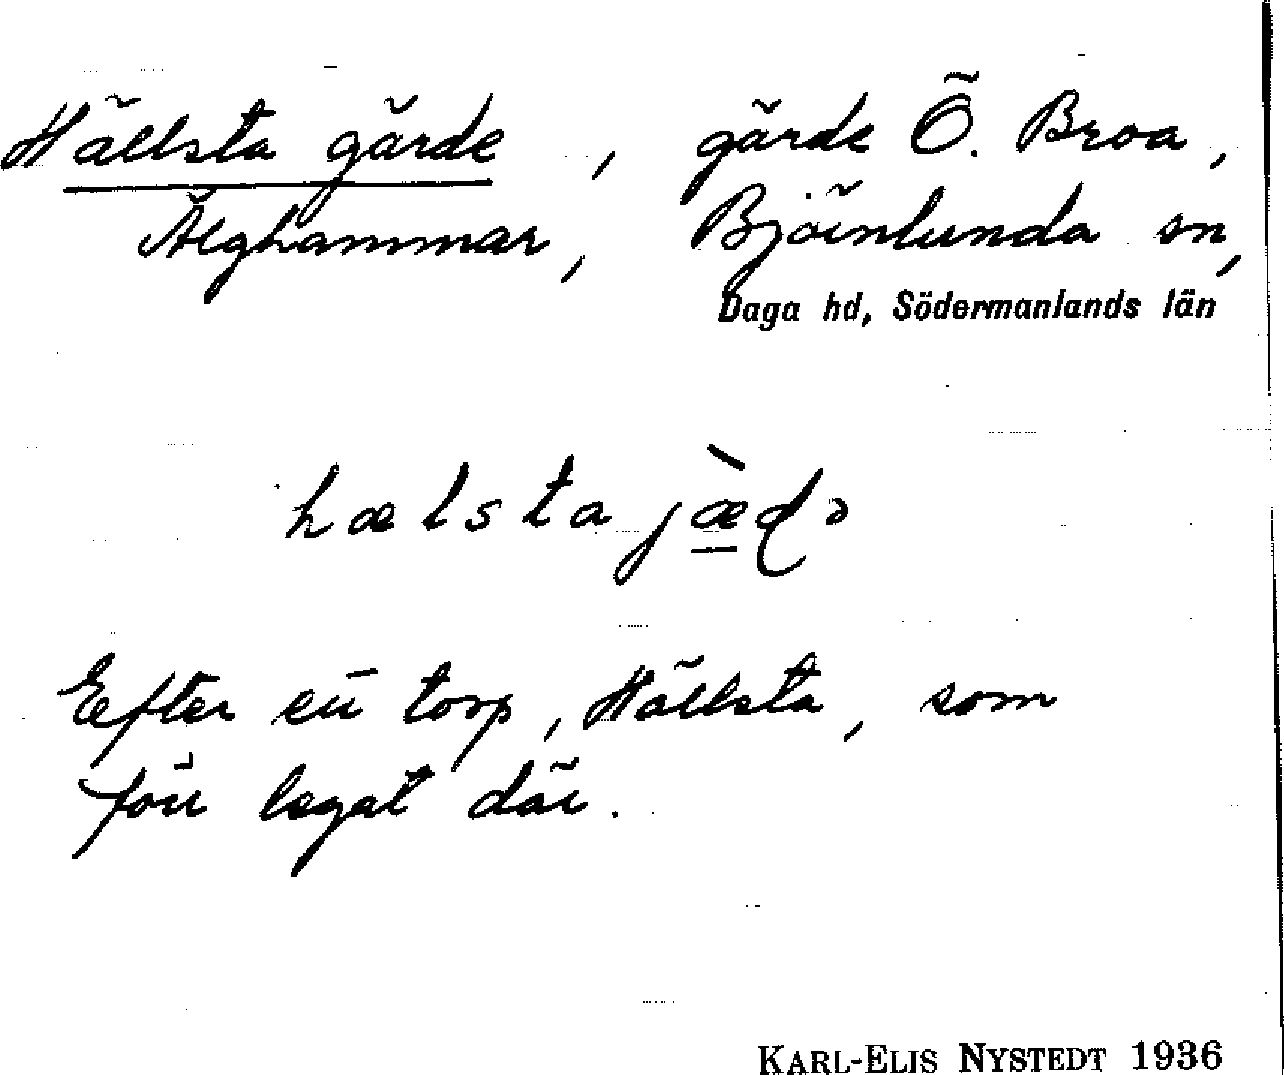 Hällsta gärde, gärde Ö. Broa,
Älghammar, Björnlunda sn,
Daga hd, Södermanlands län
hælstajæ̀ḍə
Efter ett torp, Hällsta, som
förr legat där.
KARL-ELIS NYSTEDT 1936